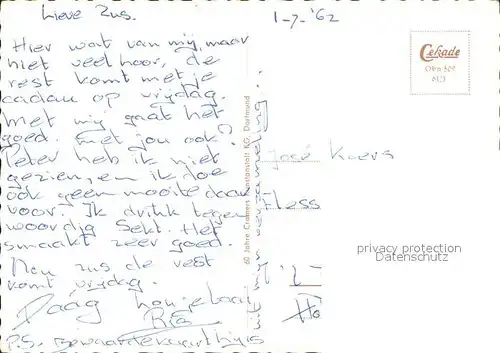 Lieve Zus.
1-7-'62
Hier wat van mij, maar
niet veel hoor, de
rest komt met je
cadau op vrijdag.
Met mij gaat het
goed. Met jou ook?
Peter heb ik niet
gezien, en ik doe
ook geen moeite daar
voor? Ik drink tegen
woordig Sekt. Het
smaakt zeer goed.
Nou zus de rest
komt vrijdag.
Daág hou je taai
Ria
P.S. Bewaar de kaart thuis
uit mijn verzameling.
60 Jahre Cramers Kunstanstalt KG, Dortmund
Cekade
José Koers
Fless
privacy protection
Datenschutz